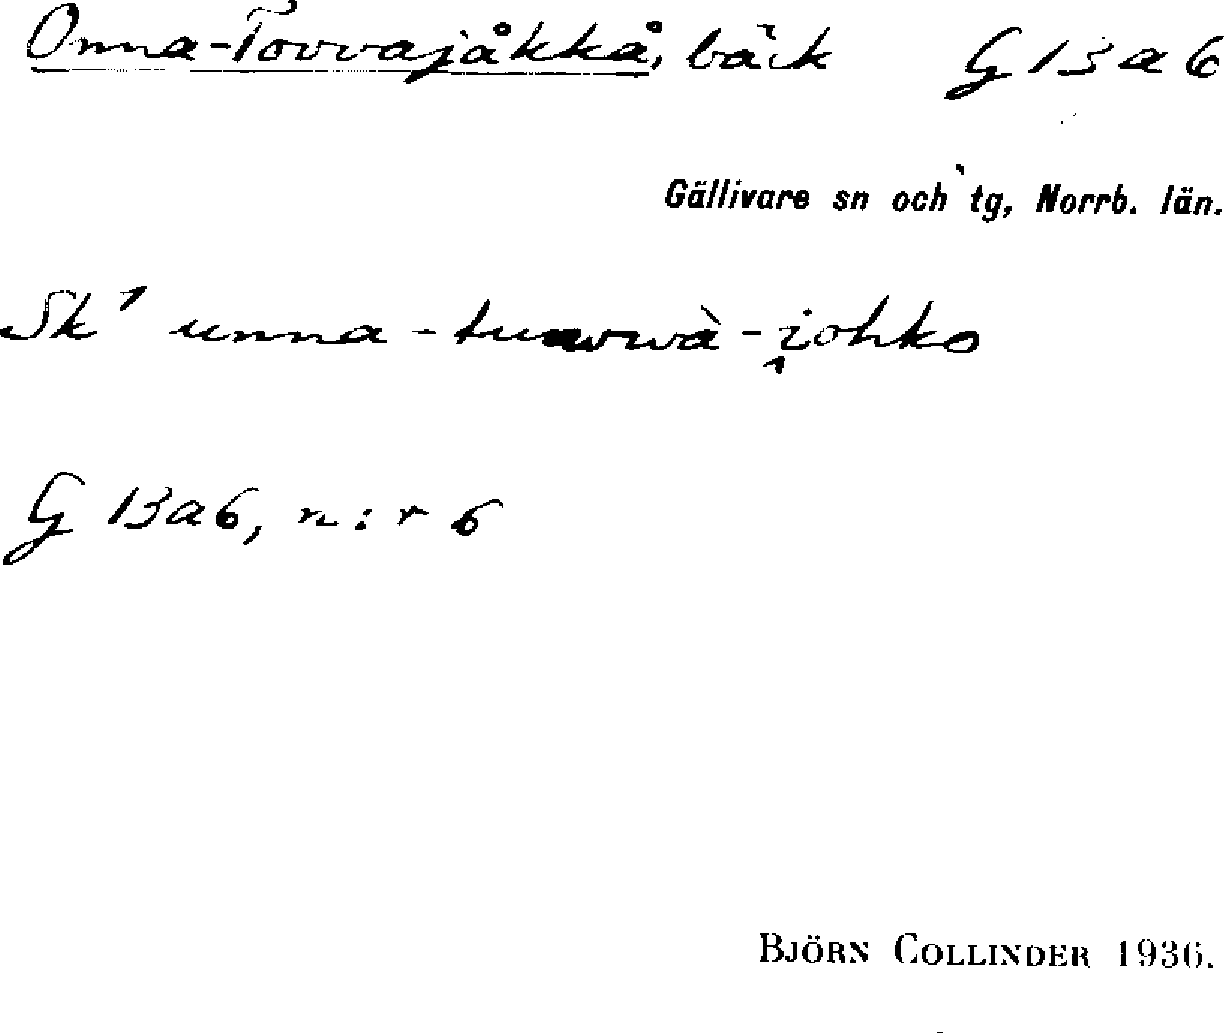 Onna-Tovvajåkkå, bäck G 13 a 6
Gällivare sn och tg, Norrb. län.
Sk' unna - - i̭ohko
G 13 a 6, n:r 6
BJÖRN COLLINDER 1936.